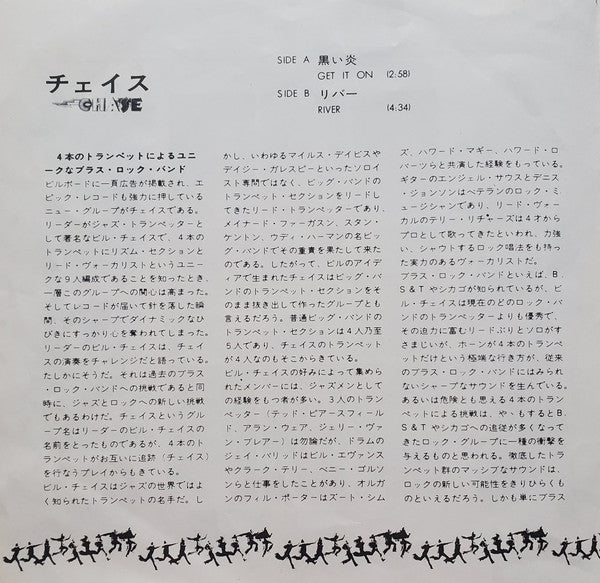 チェイス
CHASE
SIDE A 黒い炎
GET IT ON (2:58)
SIDE B リバー
RIVER (4:34)
4本のトランペットによるユニ
ークなブラス・ロック・バンド
ビルボードに一頁広告が掲載され、エ
ピック・レコードも強力に押している
ニュー・グループがチェイスである。
リーダーがジャズ・トランペッターと
して著名なビル・チェイスで、4本の
トランペットにリズム・セクションと
リード・ヴォーカリストというユニー
クな9人編成であることを知ったとき、
一層このグループへの関心は高まった。
そしてレコードが届いて針を落した瞬
間、そのシャープでダイナミックなひ
びきにすっかり心を奪われてしまった。
リーダーのビル・チェイスは、チェイ
スの演奏をチャレンジだと語っている。
たしかにそうだ。それは過去のブラス
・ロック・バンドへの挑戦であると同
時に、ジャズとロックへの新しい挑戦
でもあるわけだ。チェイスというグル
ープ名はリーダーのビル・チェイスの
名前をとったものであるが、4本のト
ランペットがお互いに追跡（チェイス）
を行なうプレイからもきている。
ビル・チェイスはジャズの世界ではよ
く知られたトランペットの名手だ。し
かし、いわゆるマイルス・デイビスや
デイジー・ガレスピーといったソロイ
スト専門ではなく、ビッグ・バンドの
トランペット・セクションをリードし
てきたリード・トランペッターであり、
メイナード・ファーガスン、スタン・
ケントン、ウディ・ハーマンの名ビッ
グ・バンドでその重責を果たして来た
のである。したがって、ビルのアイデ
ィアで生まれたチェイスはビッグ・バ
ンドのトランペット・セクションをそ
のまま抜き出して作ったグループとも
言えるだろう。普通ビッグ・バンドの
トランペット・セクションは4人乃至
5人であり、チェイスのトランペット
が4人なのもそこからきている。
ビル・チェイスの好みによって集めら
れたメンバーには、ジャズメンとして
の経験をもつ者が多い。3人のトラン
ペッター（テッド・ピアースフィール
ド、アラン・ウェア、ジェリー・ヴァ
ン・ブレアー）は勿論だが、ドラムの
ジェイ・バリッドはビル・エヴァンス
やクラーク・テリー、ベニー・ゴルソ
ンらと仕事をしたことがあり、オルガ
ンのフィル・ポーターはズート・シム
ズ、ハワード・マギー、ハワード・ロ
バーツらと共演した経験をもっている。
ギターのエンジェル・サウスとデニス
・ジョンソンはベテランのロック・ミ
ュージシャンであり、リード・ヴォー
カルのテリー・リチャーズは4才から
プロとして歌ってきたといわれ、力強
い、シャウトするロック唱法をも持っ
た実力のあるヴォーカリストだ。
ブラス・ロック・バンドといえば、B.
S&Tやシカゴが知られているが、ビ
ル・チェイスは現在のどのロック・バ
ンドのトランペッターよりも優秀で、
その迫力に富むリードぶりとソロがす
さまじいが、ホーンが4本のトランペ
ットだけという極端な行き方が、従来
のブラス・ロック・バンドにはみられ
ないシャープなサウンドを生んでいる。
あるいは危険とも思える4本のトラン
ペットによる挑戦は、やゝもするとB.
S&Tやシカゴへの追従が多くなって
きたロック・グループに一種の衝撃を
与えるものと思われる。徹底したトラ
ンペット群のマッシブなサウンドは、
ロックの新しい可能性をきりひらくも
のといえるだろう。しかも単にブラス